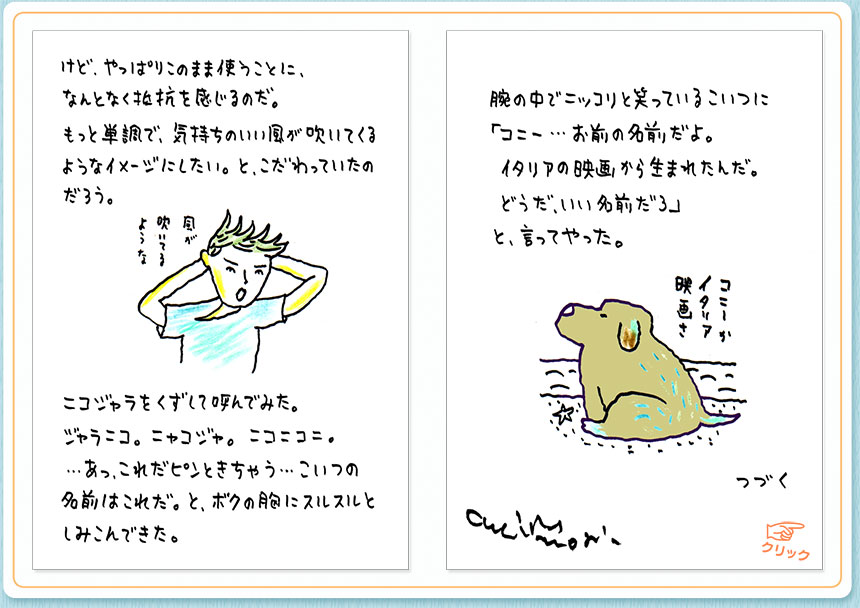 けど、やっぱりこのまま使うことに、
なんとなく抵抗を感じるのだ。
もっと単調で、気持ちのいい風が吹いてくる
ようなイメージにしたい。と、こだわっていたの
だろう。
風が
吹いてる
ような
ニコジャラをくずして呼んでみた。
ジャラニコ。ニャコジャ。ニコニコニ。
…あっ、これだピンときちゃう…こいつの
名前はこれだ。と、ボクの胸にスルスルと
しみこんできた。
腕の中でニッコリと笑っているこいつに
「コニー…お前の名前だよ。
イタリアの映画から生まれたんだ。
どうだ、いい名前だろ」
と、言ってやった。
コニーか
イタリア
映画さ
つづく
クリック